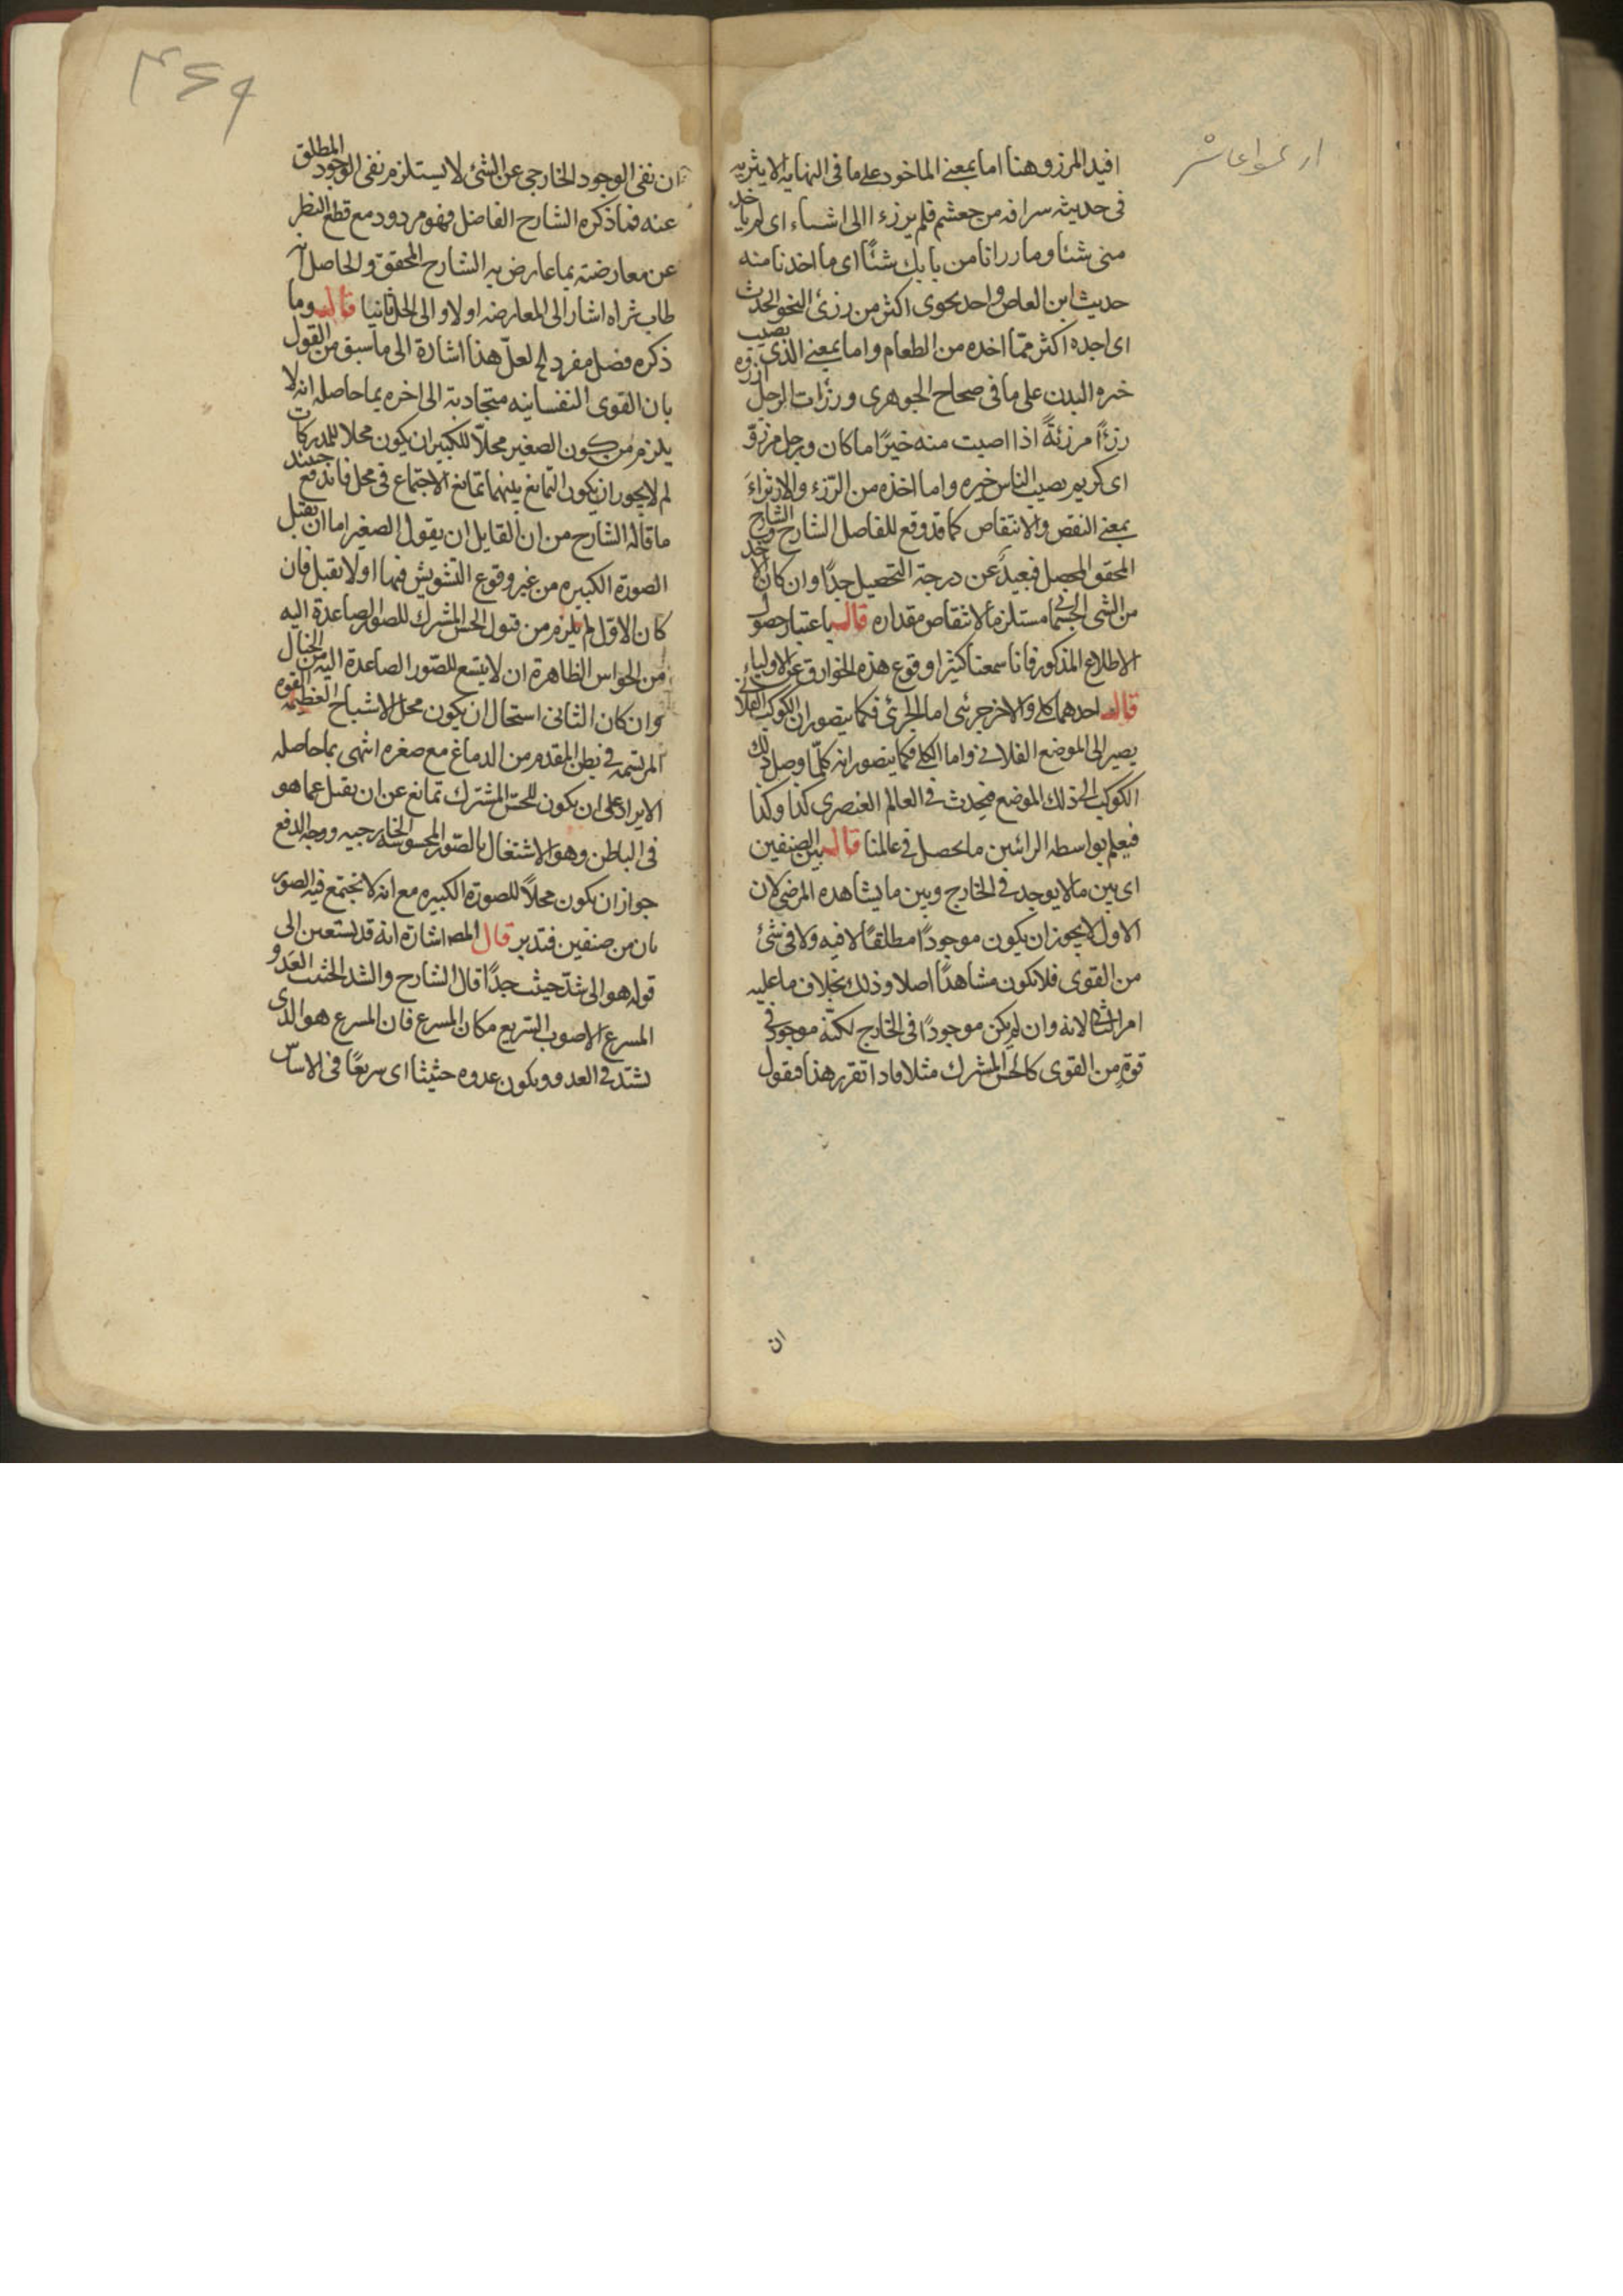 افيد المرزو هنا اما بمعنى الماخود على ما فى النهايه الاثيريه
فى حديثه سراقه من جعشم فلم يرزءا الى اشياء اى لم ياخد
منى شئا وما رزانا من بابك شئًا اى ما اخدنا منه
حديث ابن العاص واحد بحوى اكثر من رزئ النحو الحدث
اى اجده اكثر ممّا اخده من الطعام واما بمعنى الذى يصيب
خيره البدن على ما فى صحاح الجوهرى ورزات الرجل ارزوه
رزءًا مرزئةً اذا اصبت منه خيرًا ما كان ورجل مرزوّ
اى كريم يصيب الناس خيره واما اخذه من الرّزء والارتزاء
بمعنى النقص والانتقاص كما قد وقع للفاضل الشارح والشارح
المحقق المحصل فبعيدٌ عن درجة التحصيل جدًا وان كان الاخد
من الشى الجسمانى مستلزمًا لانتقاص مقداره قال باعتبار حصول
الاطلاع المذكور فانا سمعنا كثيرا وقوع هذه الخوارق عن الاولياء
قال احدهما كلى والاخر جزئى اما الجزئى فكما يتصور ان الكوكب الفلانى
يصير الى الموضع الفلانى واما الكلى فكما يتصور انه كلّما وصل ذلك
الكوكب الى ذلك الموضع فيحدث فى العالم العنصرى كذا وكذا
فيعلم بواسطه الرائين ما يحصل فى عالمنا قال بين الصنفين
اى بين ما لا يوجد فى الخارج وبين ما يشاهده المرضى لان
الاول لا يجوز ان يكون موجودًا مطلقًا لا فيه ولا فى شئ
من القوى فلا تكون مشاهدًا اصلا وذلك بخلاف ما عليه
امر الثانى لانه وان لم يكن موجودًا فى الخارج لكنّه موجود فى
قوةٍ من القوى كالحس المشترك مثلا فاذا تقرر هذا فنقول
ان
ان نفى الوجود الخارجى عن الشئ لا يستلزم نفى الوجود المطلق
عنه فما ذكره الشارح الفاضل فهو مردود مع قطع النظر
عن معارضته بما عارض به الشارح المحقق والحاصل انه
طاب ثراه اشار الى المعارضه اولا والى الحل ثانيا قال وما
ذكره فضل مفرد الخ لعلّ هذا اشارة الى ما سبق من القول
بان القوى النفسانيه متجاذبة الى اخره بما حاصله انه لا
يلزم من كون الصغير محلّا للكبير ان يكون محلا للمدركات
لم لا يجوز ان يكون التمانع بينهما تمانع الاجتماع فى محل فاندفع حينئذ
ما قاله الشارح من ان القايل ان يقول الصغير اما ان يقبل
الصورة الكبيره من غير وقوع التشويش فيها اولا يقبل فان
كان الاوّل لم يلزم من قبول الحس المشترك للصور الصاعدة اليه
من الحواس الظاهرة ان لا يتسع للصّور الصاعدة اليه من الخيال
وان كان الثانى استحال ان يكون محل الاشباح العظيمه القوه
المرتسمه فى بطن المقدم من الدماغ مع صغره انتهى بما حاصله
الايراد على ان يكون للحسّ المشترك تمانع عن ان يقبل عما هو
فى الباطن وهو الاشتغال بالصّور المحسوسه الخارجيه ووجه الدفع
جواز ان يكون محلاً للصورة الكبيره مع انه لا يجتمع فيه الصور
بان من صنفين فتدبر قال المص اشارة انه قد يستعين الى
قوله هو الى شدّ حيثث جدًا قال الشارح والشد الحثيث العَدو
المسرع الاصوب السّريع مكان المسرع فان المسرع هو الذى
يشتد فى العدو ويكون عدوه حثيثا اى سريعًا فى الاساس